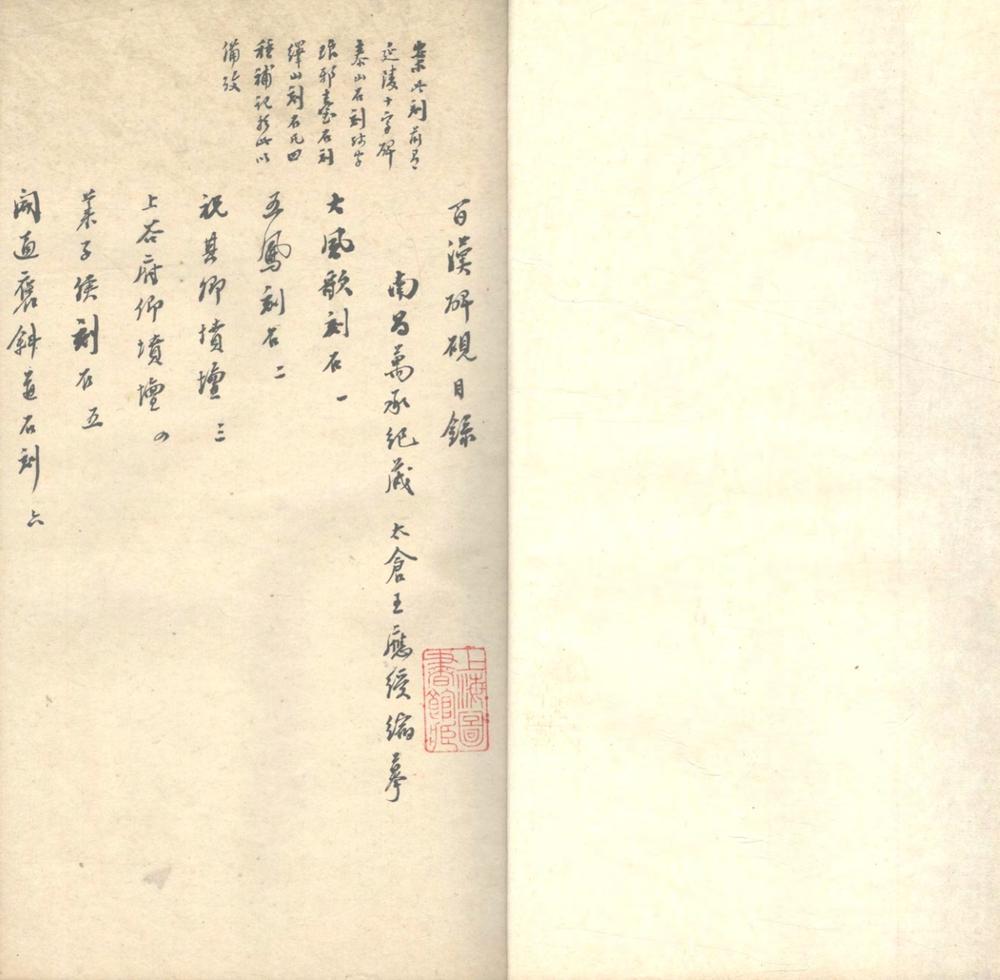 案此刻前有
延陵十字碑
泰山石刻殘字
琅邪臺石刻
繹山刻石凡四
種補記於此以
備攷
百漢碑硯目錄
南昌萬承紀藏 太倉王應綬縮摹
大風歌刻石 一
五鳳刻石 二
祝其卿墳壇 三
上谷府卿墳壇 四
萊子侯刻石 五
開通褒斜道石刻 六
上海圖
書館藏